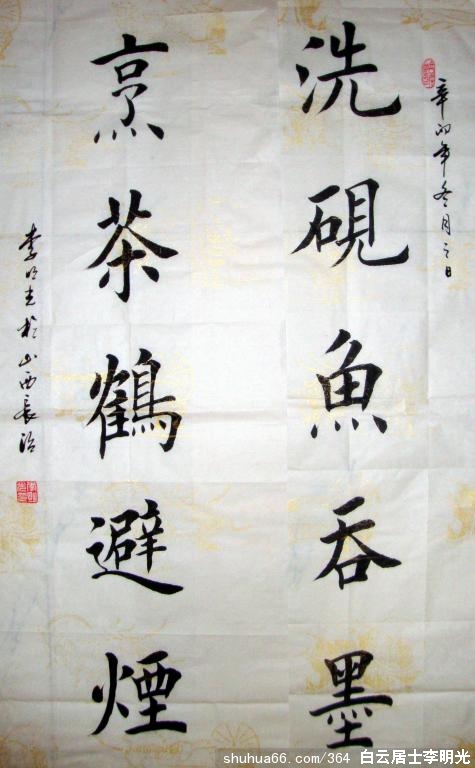 辛卯年冬月三日
洗硯魚吞墨
烹茶鶴避煙
李明光於山西長治
shuhua66.com/364 白云居士李明光